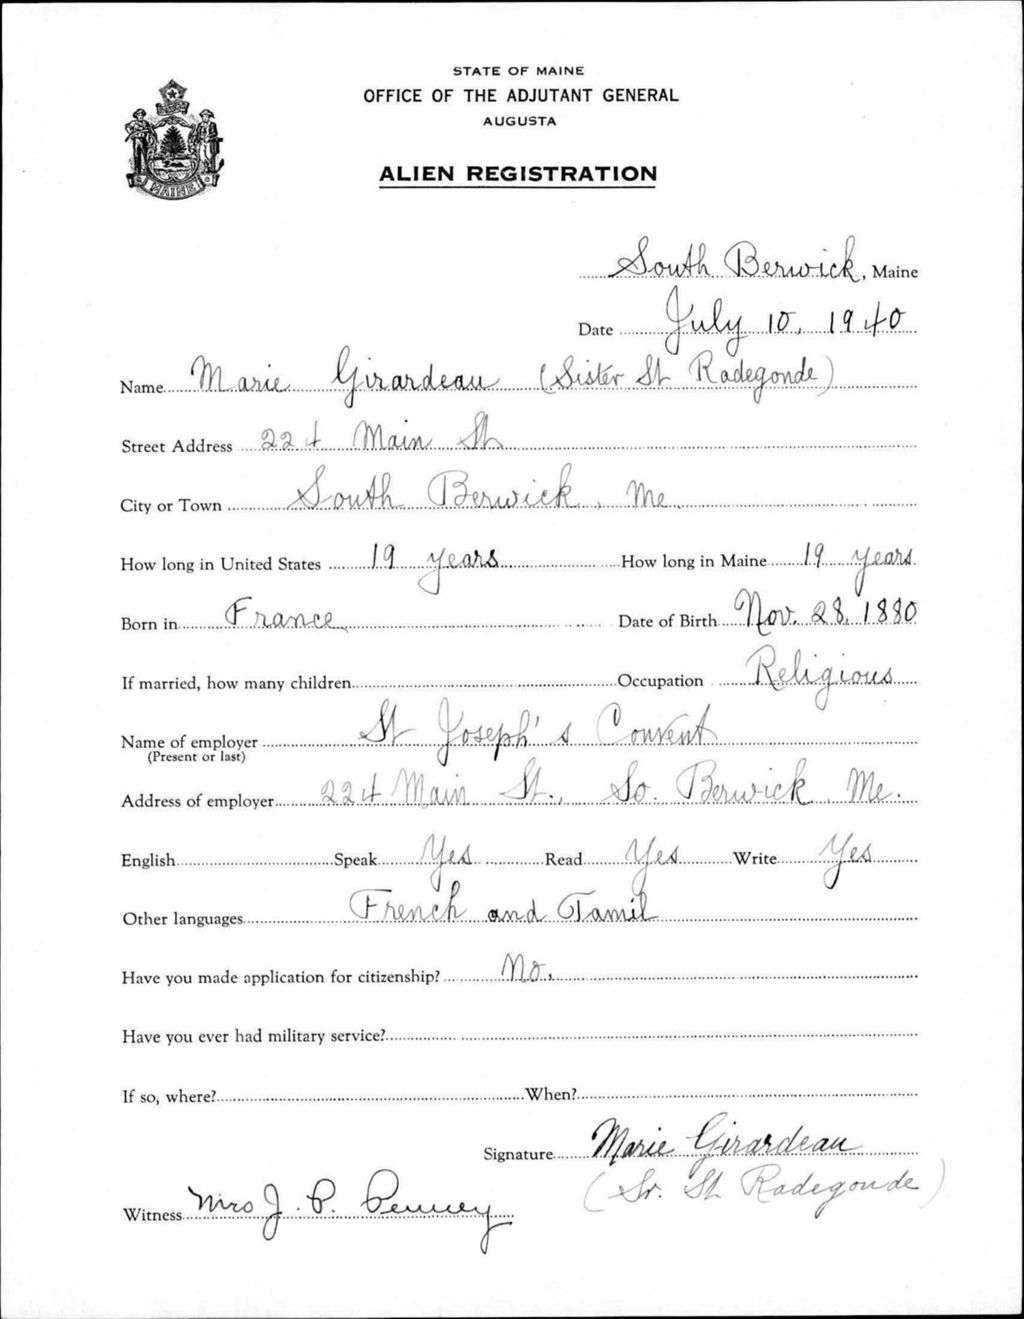 STATE OF MAINE
OFFICE OF THE ADJUTANT GENERAL
AUGUSTA
ALIEN REGISTRATION
MAINE
South Berwick, Maine
Date July 10, 1940
Name Marie Girardeau (Sister St Radegonde)
Street Address 224 Main St
City or Town South Berwick, Me.
How long in United States 19 years How long in Maine 19 years
Born in France Date of Birth Nov. 28, 1880
If married, how many children Occupation Religious
Name of employer St Joseph's Convent
(Present or last)
Address of employer 224 Main St., So. Berwick, Me.
English Speak Yes Read Yes Write Yes
Other languages French and Tamil
Have you made application for citizenship? No.
Have you ever had military service?
If so, where? When?
Signature Marie Girardeau
(Sr. St Radegonde)
Witness Mrs J. P. Penney